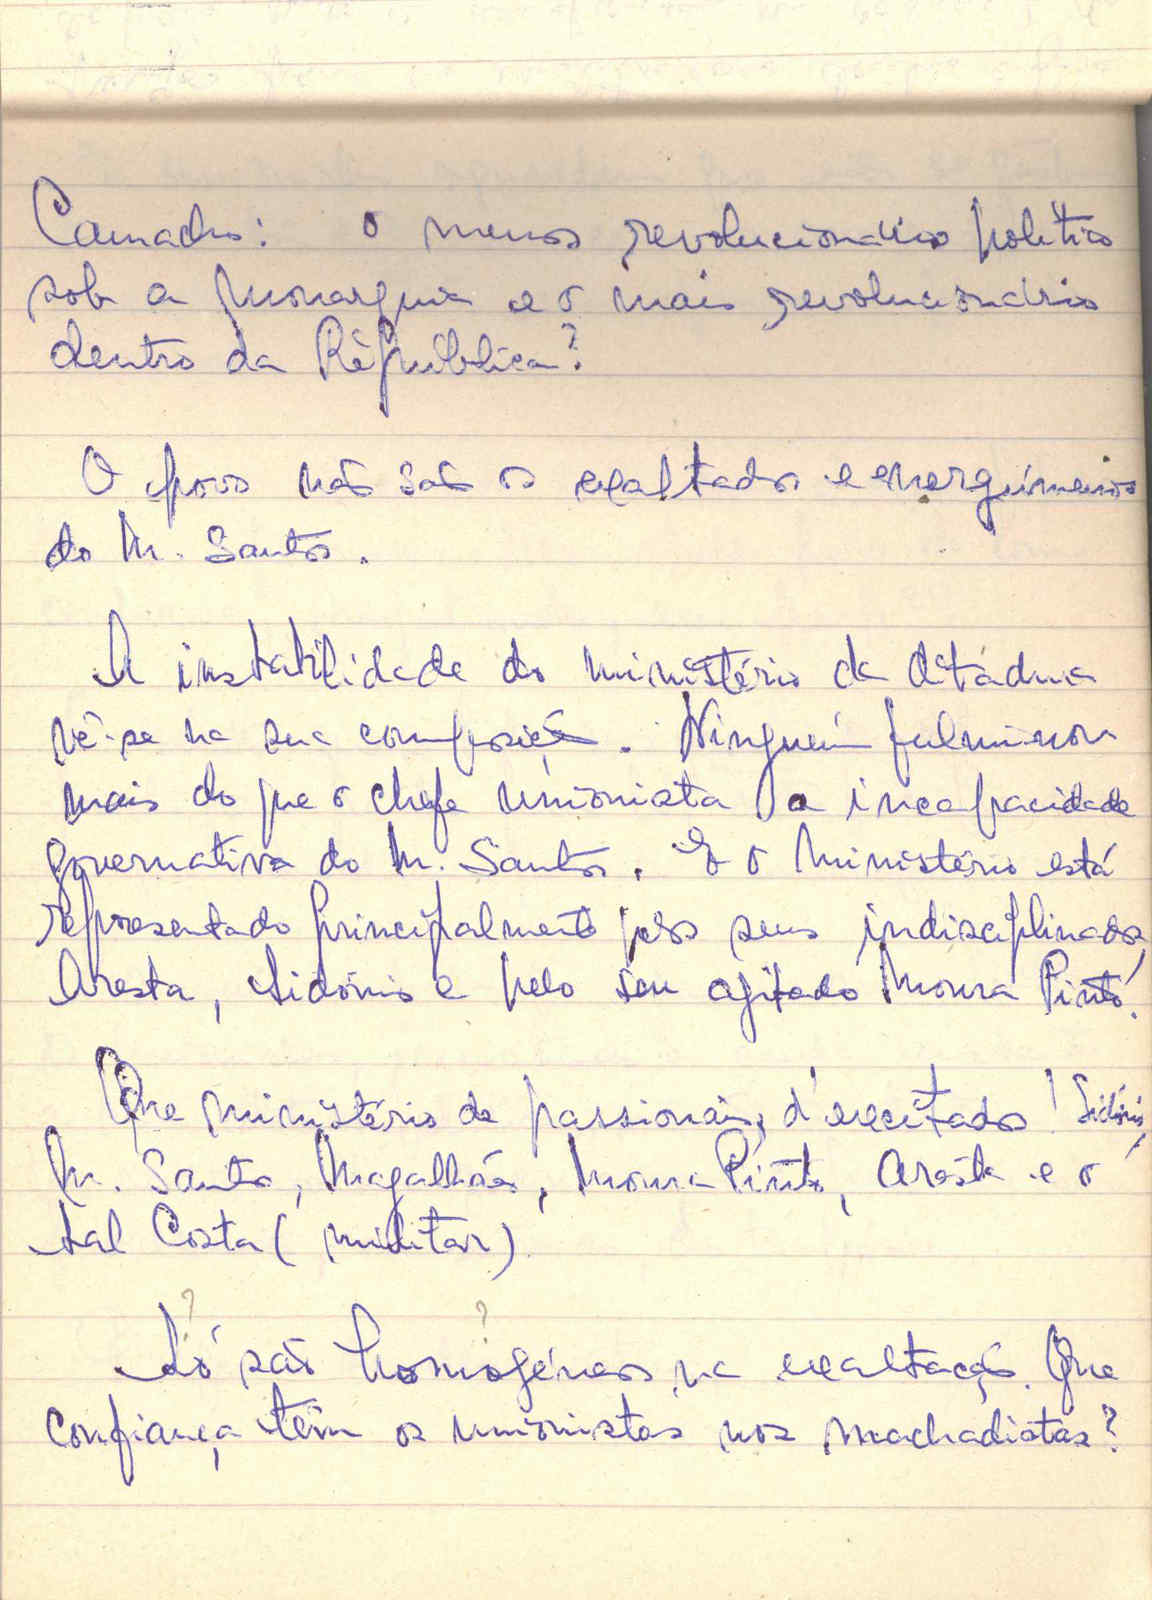 Camacho: o menos revolucionário político
sob a monarquia e o mais revolucionário
dentro da República?
O povo não são os exaltados e energúmenos
do M. Santos.
A instabilidade do ministério da ditadura
vê-se na sua composição. Ninguém fulminou
mais do que o chefe unionista a incapacidade
governativa do M. Santos. E o Ministério está
representado principalmente pelos seus indisciplinados,
Aresta, Sidónio e pelo seu agitado Moura Pinto!
Que ministério de passionais, d'excitados! Sidónio,
M. Santos, Magalhães, Moura Pinto, Aresta e o
tal Costa (militar).
? ?
Só são homogéneos na exaltação. Que
confiança têm os unionistas nos machadistas?